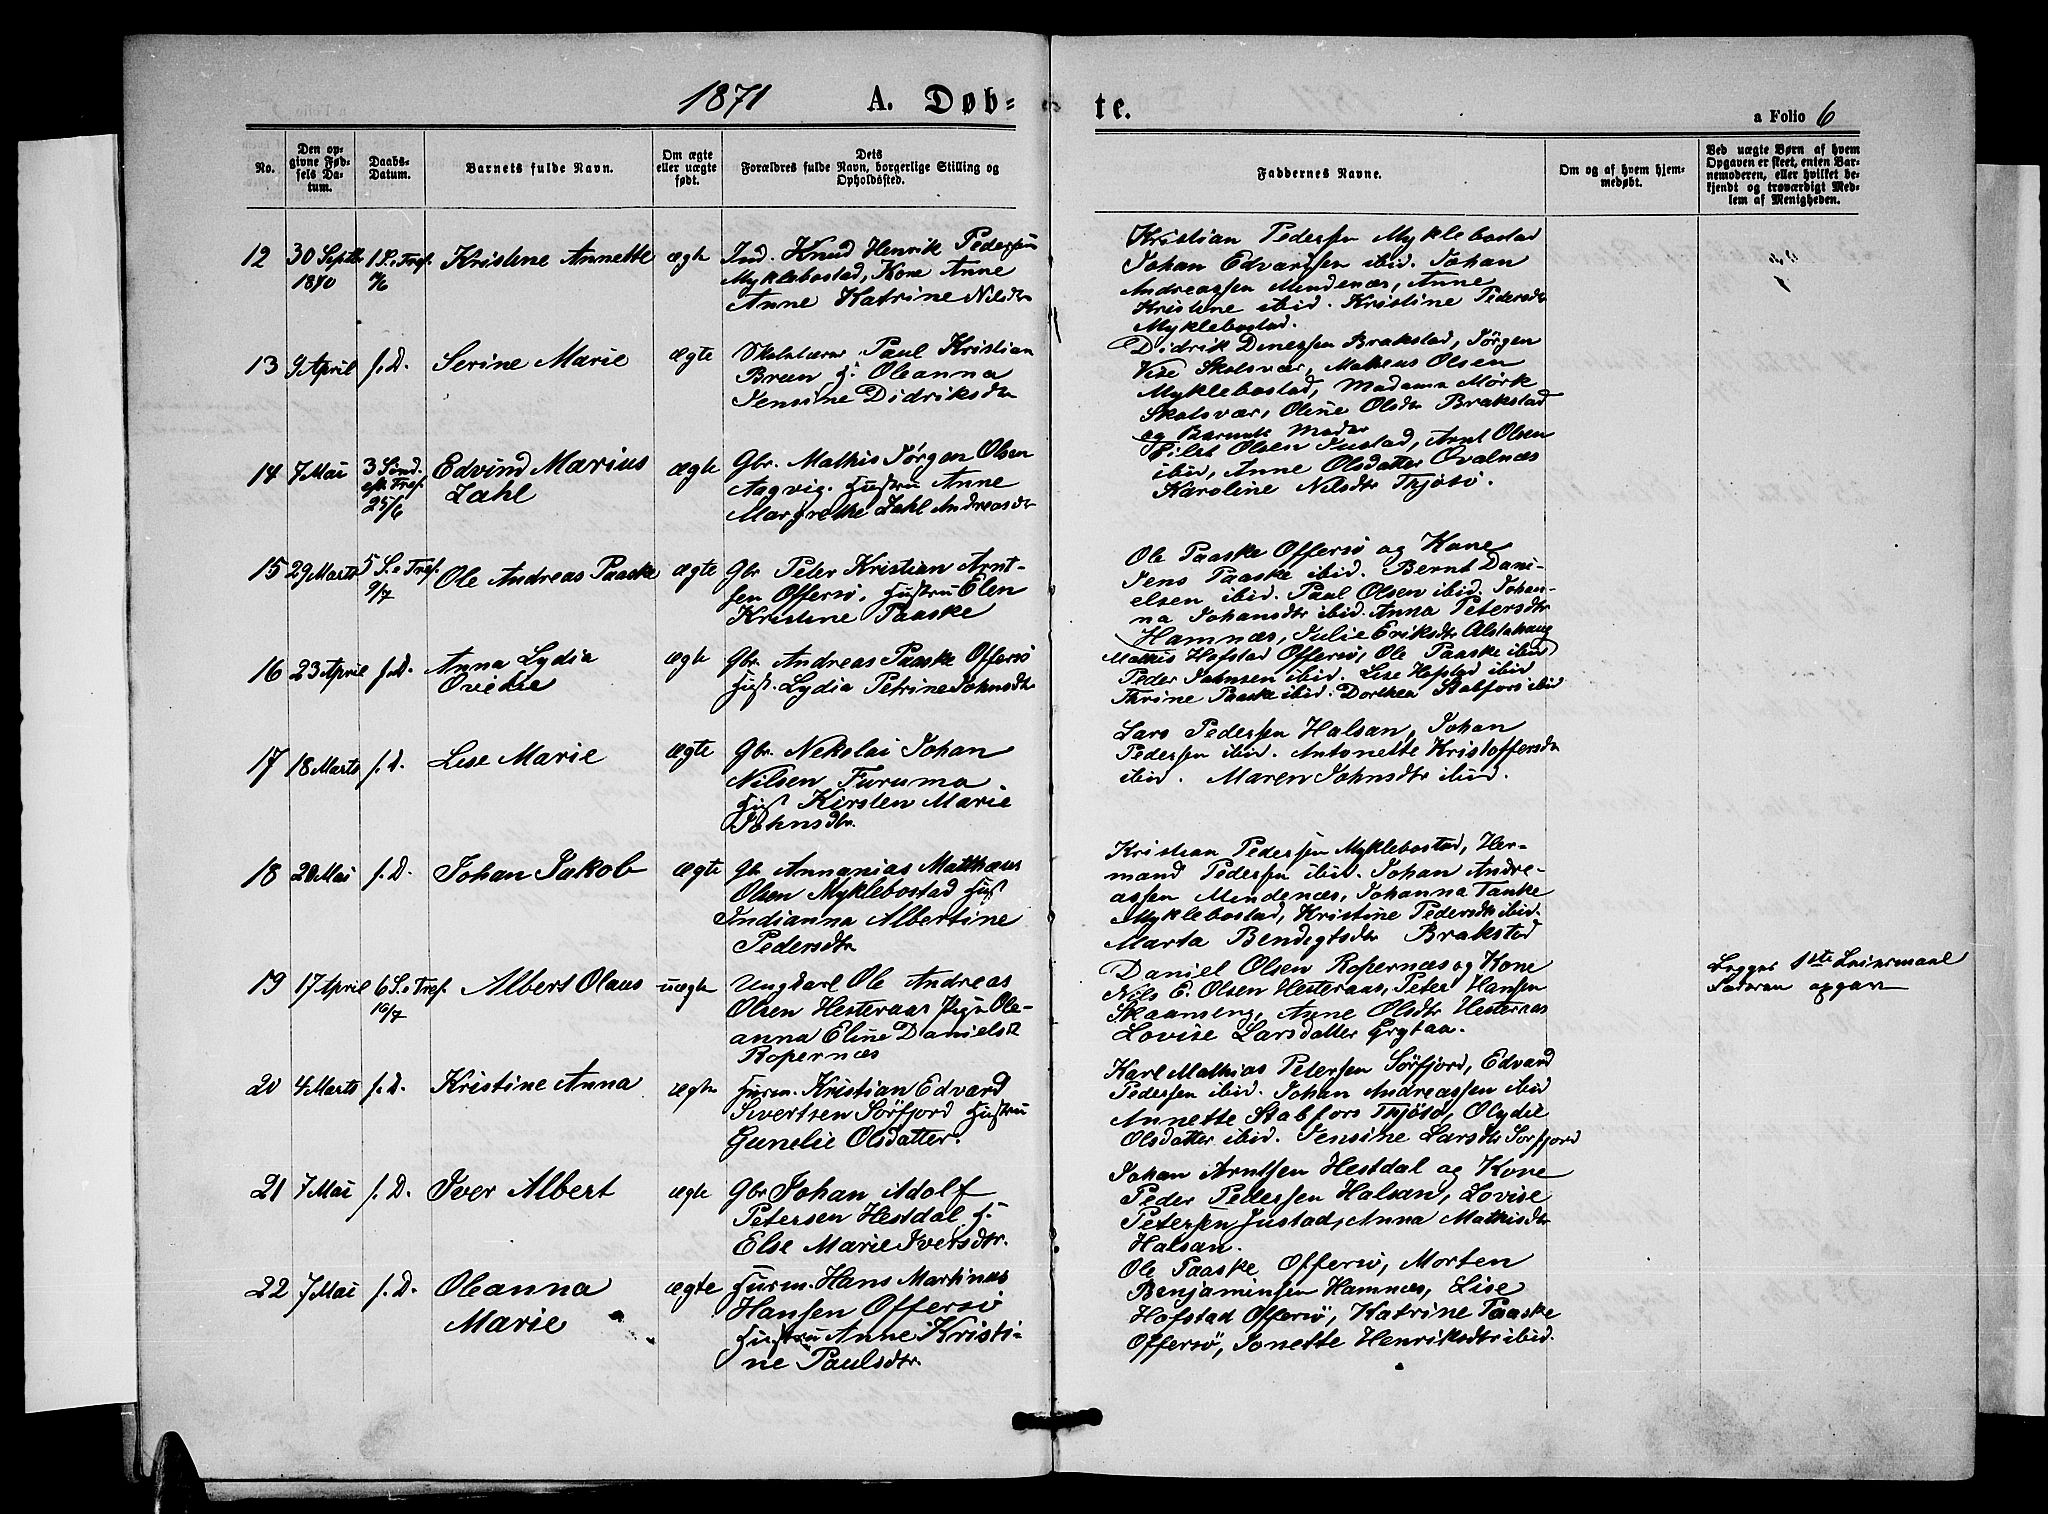 1871
A. Døb-
te.
a Folio 6
No.
Den op-
givne Fød-
sels Da-
tum.
Daabs-
Datum.
Barnets fulde Navn.
Om ægte
eller uægte
født.
Dets
Forældres fulde Navn, borgerlige Stilling og
Opholdssted.
Faddernes Navne.
Om og af hvem hjem-
medøbt.
Ved uægte Børn af hvem
Opgaven er skeet, enten Bar-
nemoderen, eller hvilket be-
kjendt og troværdigt Med-
lem af Menigheden.
12
30 Septbr
1870
1 S. e. Tref.
Kristine Annette
ægte
Ind. Knud Henrik Pedersen
Myklebostad, Kone Anne
Anne Katrine Nilsdtr
Kristian Pedersen Myklebostad
Johan Edvardsen ibid. Johan
Andreassen Mindenæs, Anne
Kristine ibid. Kristine Pedersdtr
Myklebostad.
13
9 April
s. D.
Serine Marie
ægte
Skolelærer Paul Kristian
Breen H. Oleanna
Jensine Didriksdtr
Didrik Dinessen Brakstad, Jörgen
Vise Skolsvær, Matheus Olsen
Myklebostad, Madama Mörk
Skolsvær, Oline Olsdtr Brakstad
og Barnets Moder
14
7 Mai
3 Sönd.
eft. Tref.
25/6
Edvind Marius
Zahl
ægte
Gbr. Mathis Jörgen Olsen
Aagvig. Hustru Anne
Margrethe Zahl Andreasdtr
Olsen Justad, Arnt Olsen
ibid, Anne Olsdatter Qvalnæs
Karoline Nilsdtr Thjötö.
15
29 Marts
5 S. e. Tref.
9/7
Ole Andreas Paaske
ægte
Gbr Peter Kristian Arnt-
sen Offersö. Hustru Elen
Kristine Paaske
Ole Paaske Offersö og Kone
Jens Paaske ibid. Bernt Dani-
elsen ibid. Paul Olsen ibid. Johan-
na Johansdtr ibid. Anna Petersdtr
Hamnæs, Julie Eriksdtr Alstahaug
16
23 April
s. D.
Anna Lydia
Ovedie
ægte
Gbr. Andreas Paaske Offersö
Hust. Lydia Petrine Johnsdtr
Mathis Hofstad Offersö, Ole Paaske ibid
Peder Johnsen ibid. Lise Hofstad ibid
Thrine Paaske ibid. Dorthea Stabfors ibid
17
18 Marts
s. D.
Lise Marie
ægte
Gbr. Nekolai Johan
Nilsen Furuma
Hust Kirsten Marie
Johnsdtr.
Lars Pedersen Halsan, Johan
Pedersen ibid. Antonette Kristoffersdtr
ibid. Maren Johnsdtr ibid.
18
20 Mai
s. D.
Johan Jakob
ægte
Gb Annanias Matthæus
Olsen Myklebostad Hust
Indianna Albertine
Pedersdtr
Kristian Pedersen Myklebostad, Her-
mand Pedersen ibid. Johan Andre-
assen Mindenæs, Johanna Tanke
Myklebostad, Kristine Pedersdtr ibid.
Marta Bendigtsdtr Brakstad
19
17 April
6 S. e. Tref.
16/7
Albert Olaus
uægte
Ungkarl Ole Andreas
Olsen Hesteraas Pige Ole-
anna Eline Danielsd
Ropernæs
Daniel Olsen Ropernæs og Kone
Nils E. Olsen Hesteraas, Peter Hansen
Skaanseng, Anne Olsdtr Hesteraas
Lovise Larsdatter Grytaa.
Begges 1ste Leiermaal
Faderen opgav
20
4 Marts
s. D.
Kristine Anna
ægte
Husm. Kristian Edvard
Sivertsen Sörfjord Hustru
Gunelie Olsdatter.
Karl Mathias Petersen Sörfjord, Edvard
Pedersen ibid. Johan Andreassen ibid
Annette Stabfors Thjötö, Olydie
Olsdatter ibid. Jensine Larsdtr Sörfjord
21
7 Mai
s. D.
Iver Albert
ægte
Gbr Johan Adolf
Petersen Hestdal H.
Else Marie Iversdtr.
Johan Arntsen Hestdal og Kone
Peder Pedersen Halsan, Lovise
Petersen Justad, Anna Mathisdtr
Halsan.
22
7 Mai
s. D.
Oleanna
Marie
ægte
Husm. Hans Martinus
Hansen Offersö
Hustru Anne Kristi-
ne Paulsdtr.
Ole Paaske Offersö, Morten
Benjaminsen Hamnæs, Lise
Hofstad Offersö, Katrine Paaske
Offersö, Jonette Henriksdtr ibid.